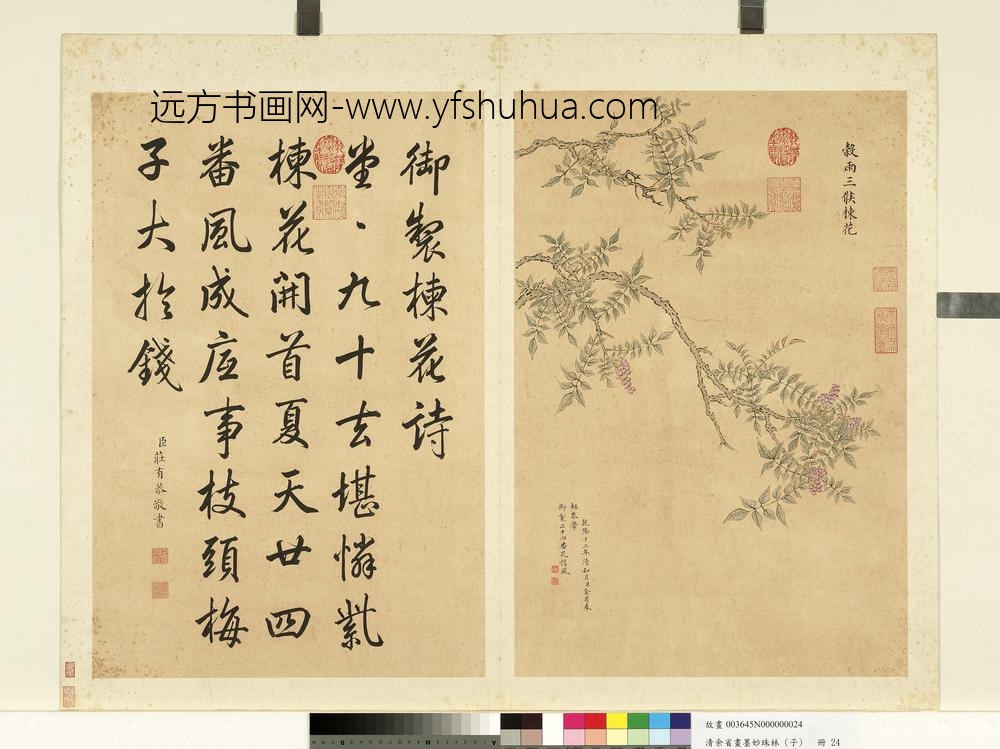 远方书画网-www.yfshuhua.com
榖雨三候楝花
乾隆十二年清和月臣余省奉
勅恭摹
御製二十四番花信風
御製楝花詩
堂〻九十去堪憐紫
楝花開首夏天廿四
番風成底事枝頭梅
子大於錢
臣莊有恭敬書
故畫 003645N000000024
清余省畫墨妙珠林（子） 冊 24